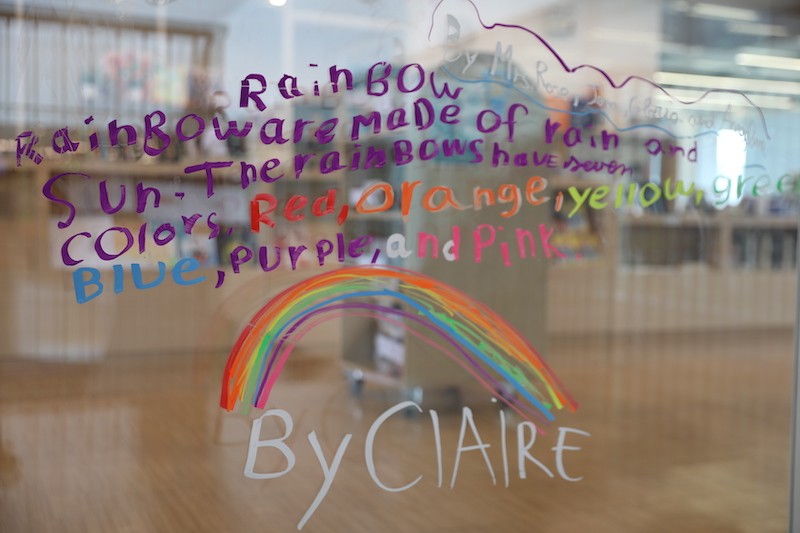 RainBOW
RainBOWaremaDe of rain and
Sun. TherainBOWs haveseven
COlOrs. Red, Orange, yellow, green
BlUe, purple, and Pink.
By ClAire
By